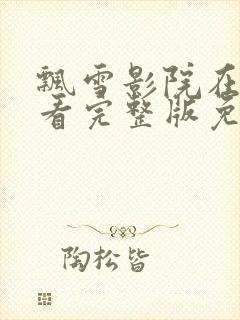 飘雪影院在
看完整版免
陶松皆